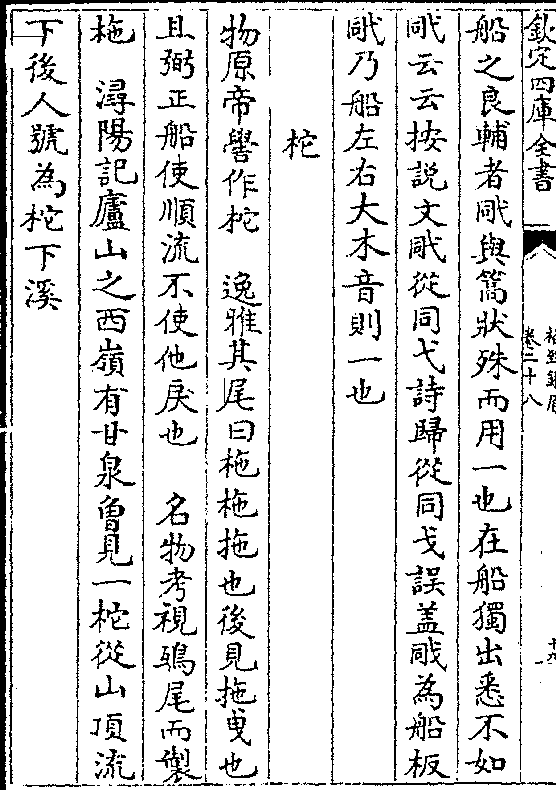 欽定四庫全書
卷二十八
船之良輔者䑸與篙狀殊而用一也在船獨出悉不如
云云按說文從同弋詩歸從同戈誤盖為船板
乃船左右大木音則一也
柁
物原帝嚳作柁　逸雅其尾曰柂柂拖也後見拖曳也
且弼正船使順流不使他戾也　名物考視鴻尾而製
柂　潯陽記廬山之西嶺有甘泉曾見一柁從山頂流
下後人號為柁下溪